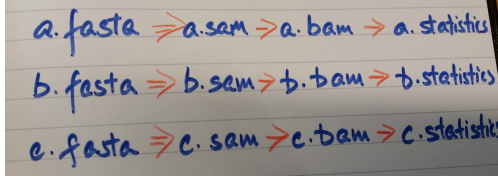 a.fasta ⇒ a.sam → a.bam → a.statistics
b.fasta ⇒ b.sam → b.bam → b.statistics
c.fasta ⇒ c.sam → c.bam → c.statistics